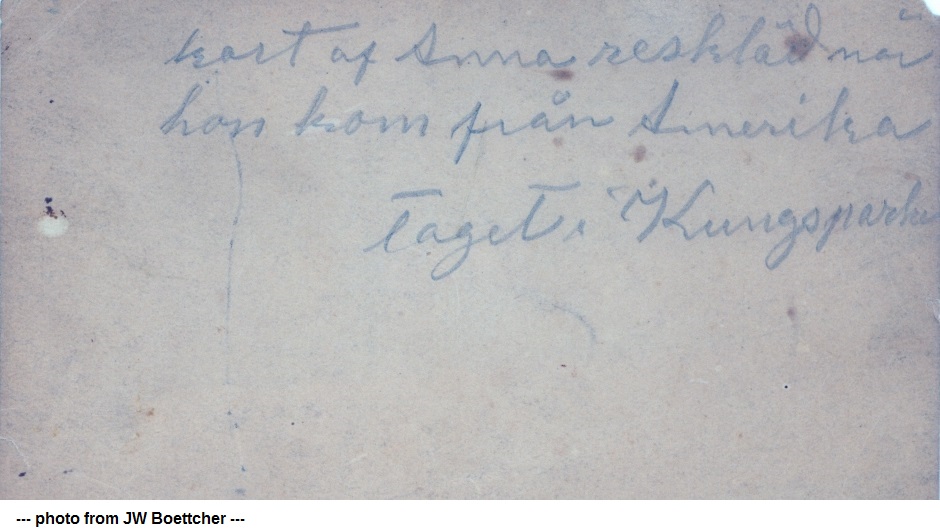 kort af Anna reskläd när
hon kom från Amerika
taget i Kungsparke
--- photo from JW Boettcher ---